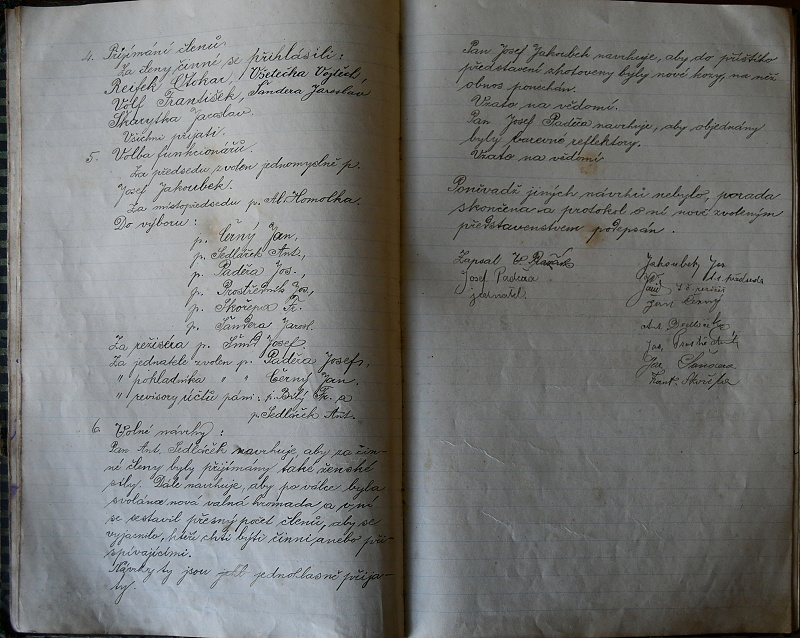 4. Přijímání členů.
Za členy činné se přihlásili:
Reifek Otokar, Všetečka Vojtěch,
Volf František, Šandera Jaroslav
Skarytka Jaroslav.
Všichni přijati.
5. Volba funkcionářů.
Za předsedu zvolen jednomyslně p.
Josef Jakoubek.
Za místopředsedu p. Al. Homolka.
Do výboru:
p. Černý Jan,
p. Sedláček Ant.,
p. Paděra Jos.,
p. Prostředník Jos,
p. Skořepa Fr.
p. Šandera Jarosl.
Za režiséra p. Šmíd Josef.
Za jednatele zvolen p. Paděra Josef,
" pokladníka " " Černý Jan.
" revisory účtů páni: p. Bílý Fr. a
p. Sedláček Ant.
6. Volné návrhy:
Pan Ant. Sedláček navrhuje, aby za čin-
né členy byly přijímány také ženské
síly. Dále navrhuje, aby po válce byla
svolána nová valná hromada a v ní
se sestavil přesný počet členů, aby se
vyjasnilo, kteří chtí býti činní anebo při-
spívajícími.
Návrhy ty jsou jednohlasně přija-
ty.
Pan Josef Jakoubek navrhuje, aby do příštího
představení zhotoveny byly nové kozy, na něž
obnos ponechán.
Vzato na vědomí.
Pan Josef Paděra navrhuje, aby objednány
byly barevné reflektory.
Vzato na vědomí
Poněvadž jiných návrhů nebylo, porada
skončena a protokol s ní nově zvoleným
představenstvem podepsán.
Zapsal
Josef Paděra
jednatel.
Jakoubek Jos
předseda
Jan Černý
Ant. Sedláček
Jos. Prostředník
Jar. Šandera
Frant. Skořepa